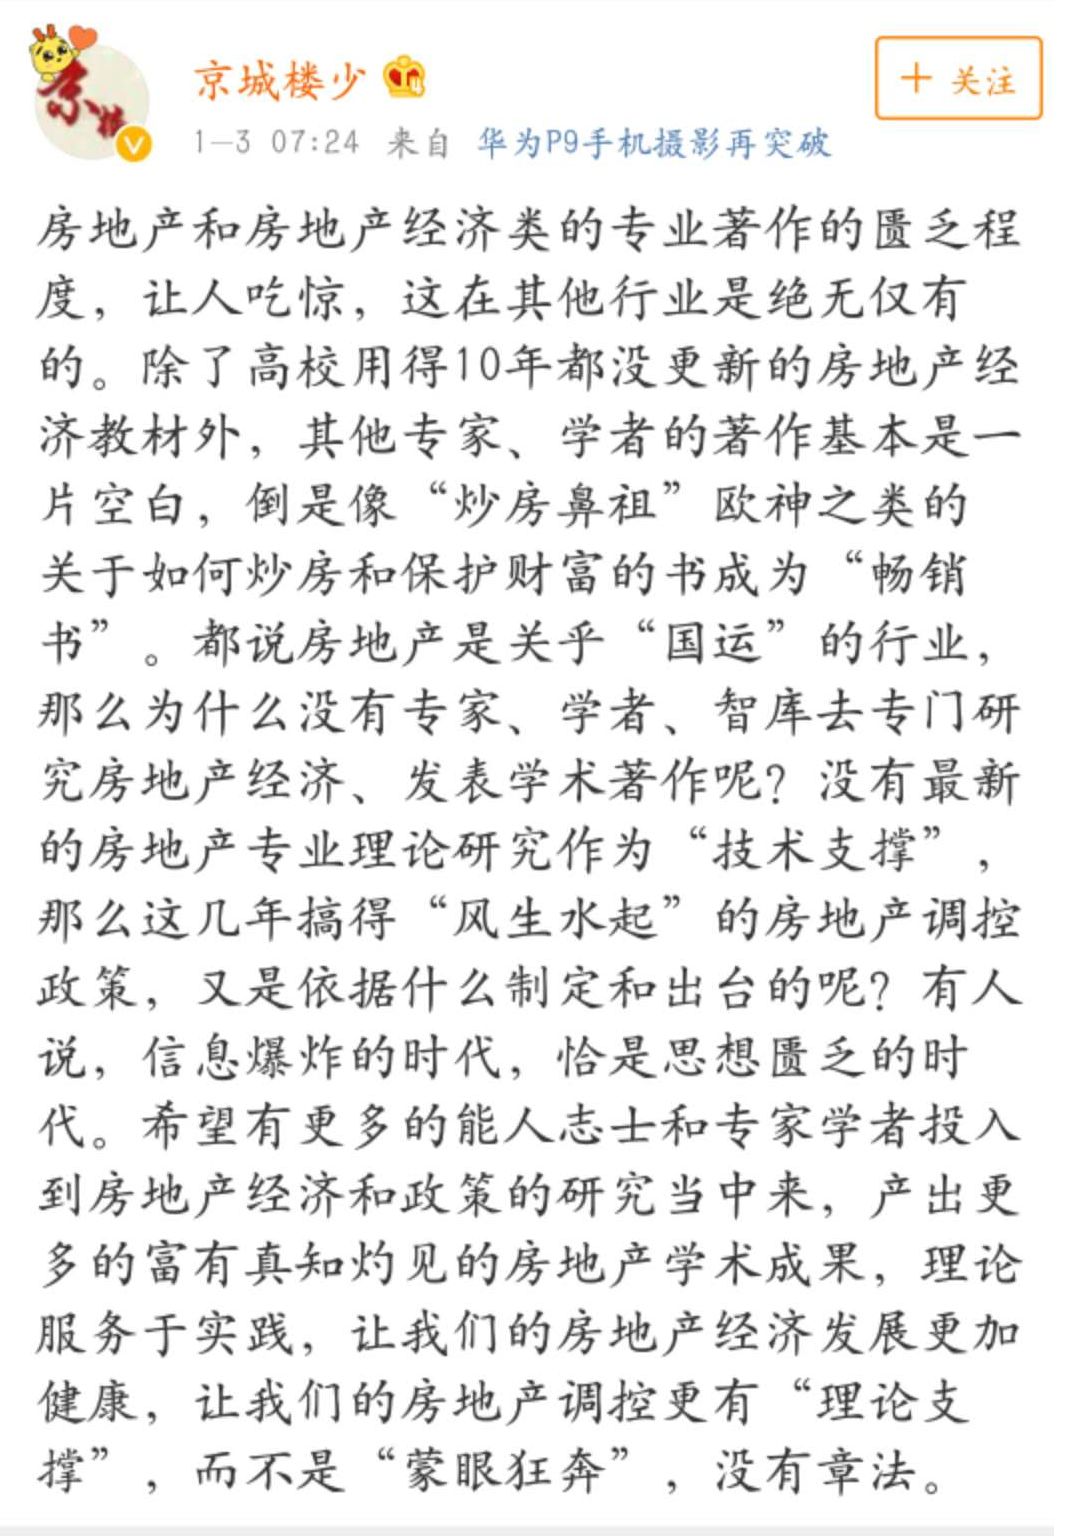 京城楼少
1-3 07:24 来自 华为P9手机摄影再突破
+ 关注
房地产和房地产经济类的专业著作的匮乏程
度，让人吃惊，这在其他行业是绝无仅有
的。除了高校用得10年都没更新的房地产经
济教材外，其他专家、学者的著作基本是一
片空白，倒是像“炒房鼻祖”欧神之类的
关于如何炒房和保护财富的书成为“畅销
书”。都说房地产是关乎“国运”的行业，
那么为什么没有专家、学者、智库去专门研
究房地产经济、发表学术著作呢？没有最新
的房地产专业理论研究作为“技术支撑”，
那么这几年搞得“风生水起”的房地产调控
政策，又是依据什么制定和出台的呢？有人
说，信息爆炸的时代，恰是思想匮乏的时
代。希望有更多的能人志士和专家学者投入
到房地产经济和政策的研究当中来，产出更
多的富有真知灼见的房地产学术成果，理论
服务于实践，让我们的房地产经济发展更加
健康，让我们的房地产调控更有“理论支
撑”，而不是“蒙眼狂奔”，没有章法。